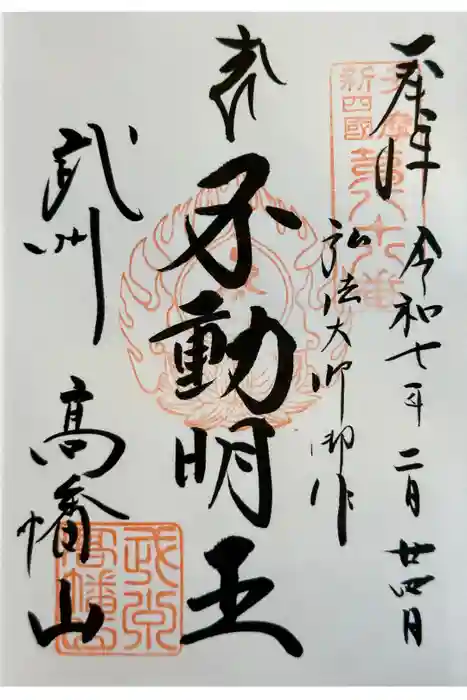 奉拝
令和七年 二月 廿四日
多摩
新四國
第八十八番
弘法大師御作
奉
不動明王
武州
高幡山
武州
高幡山